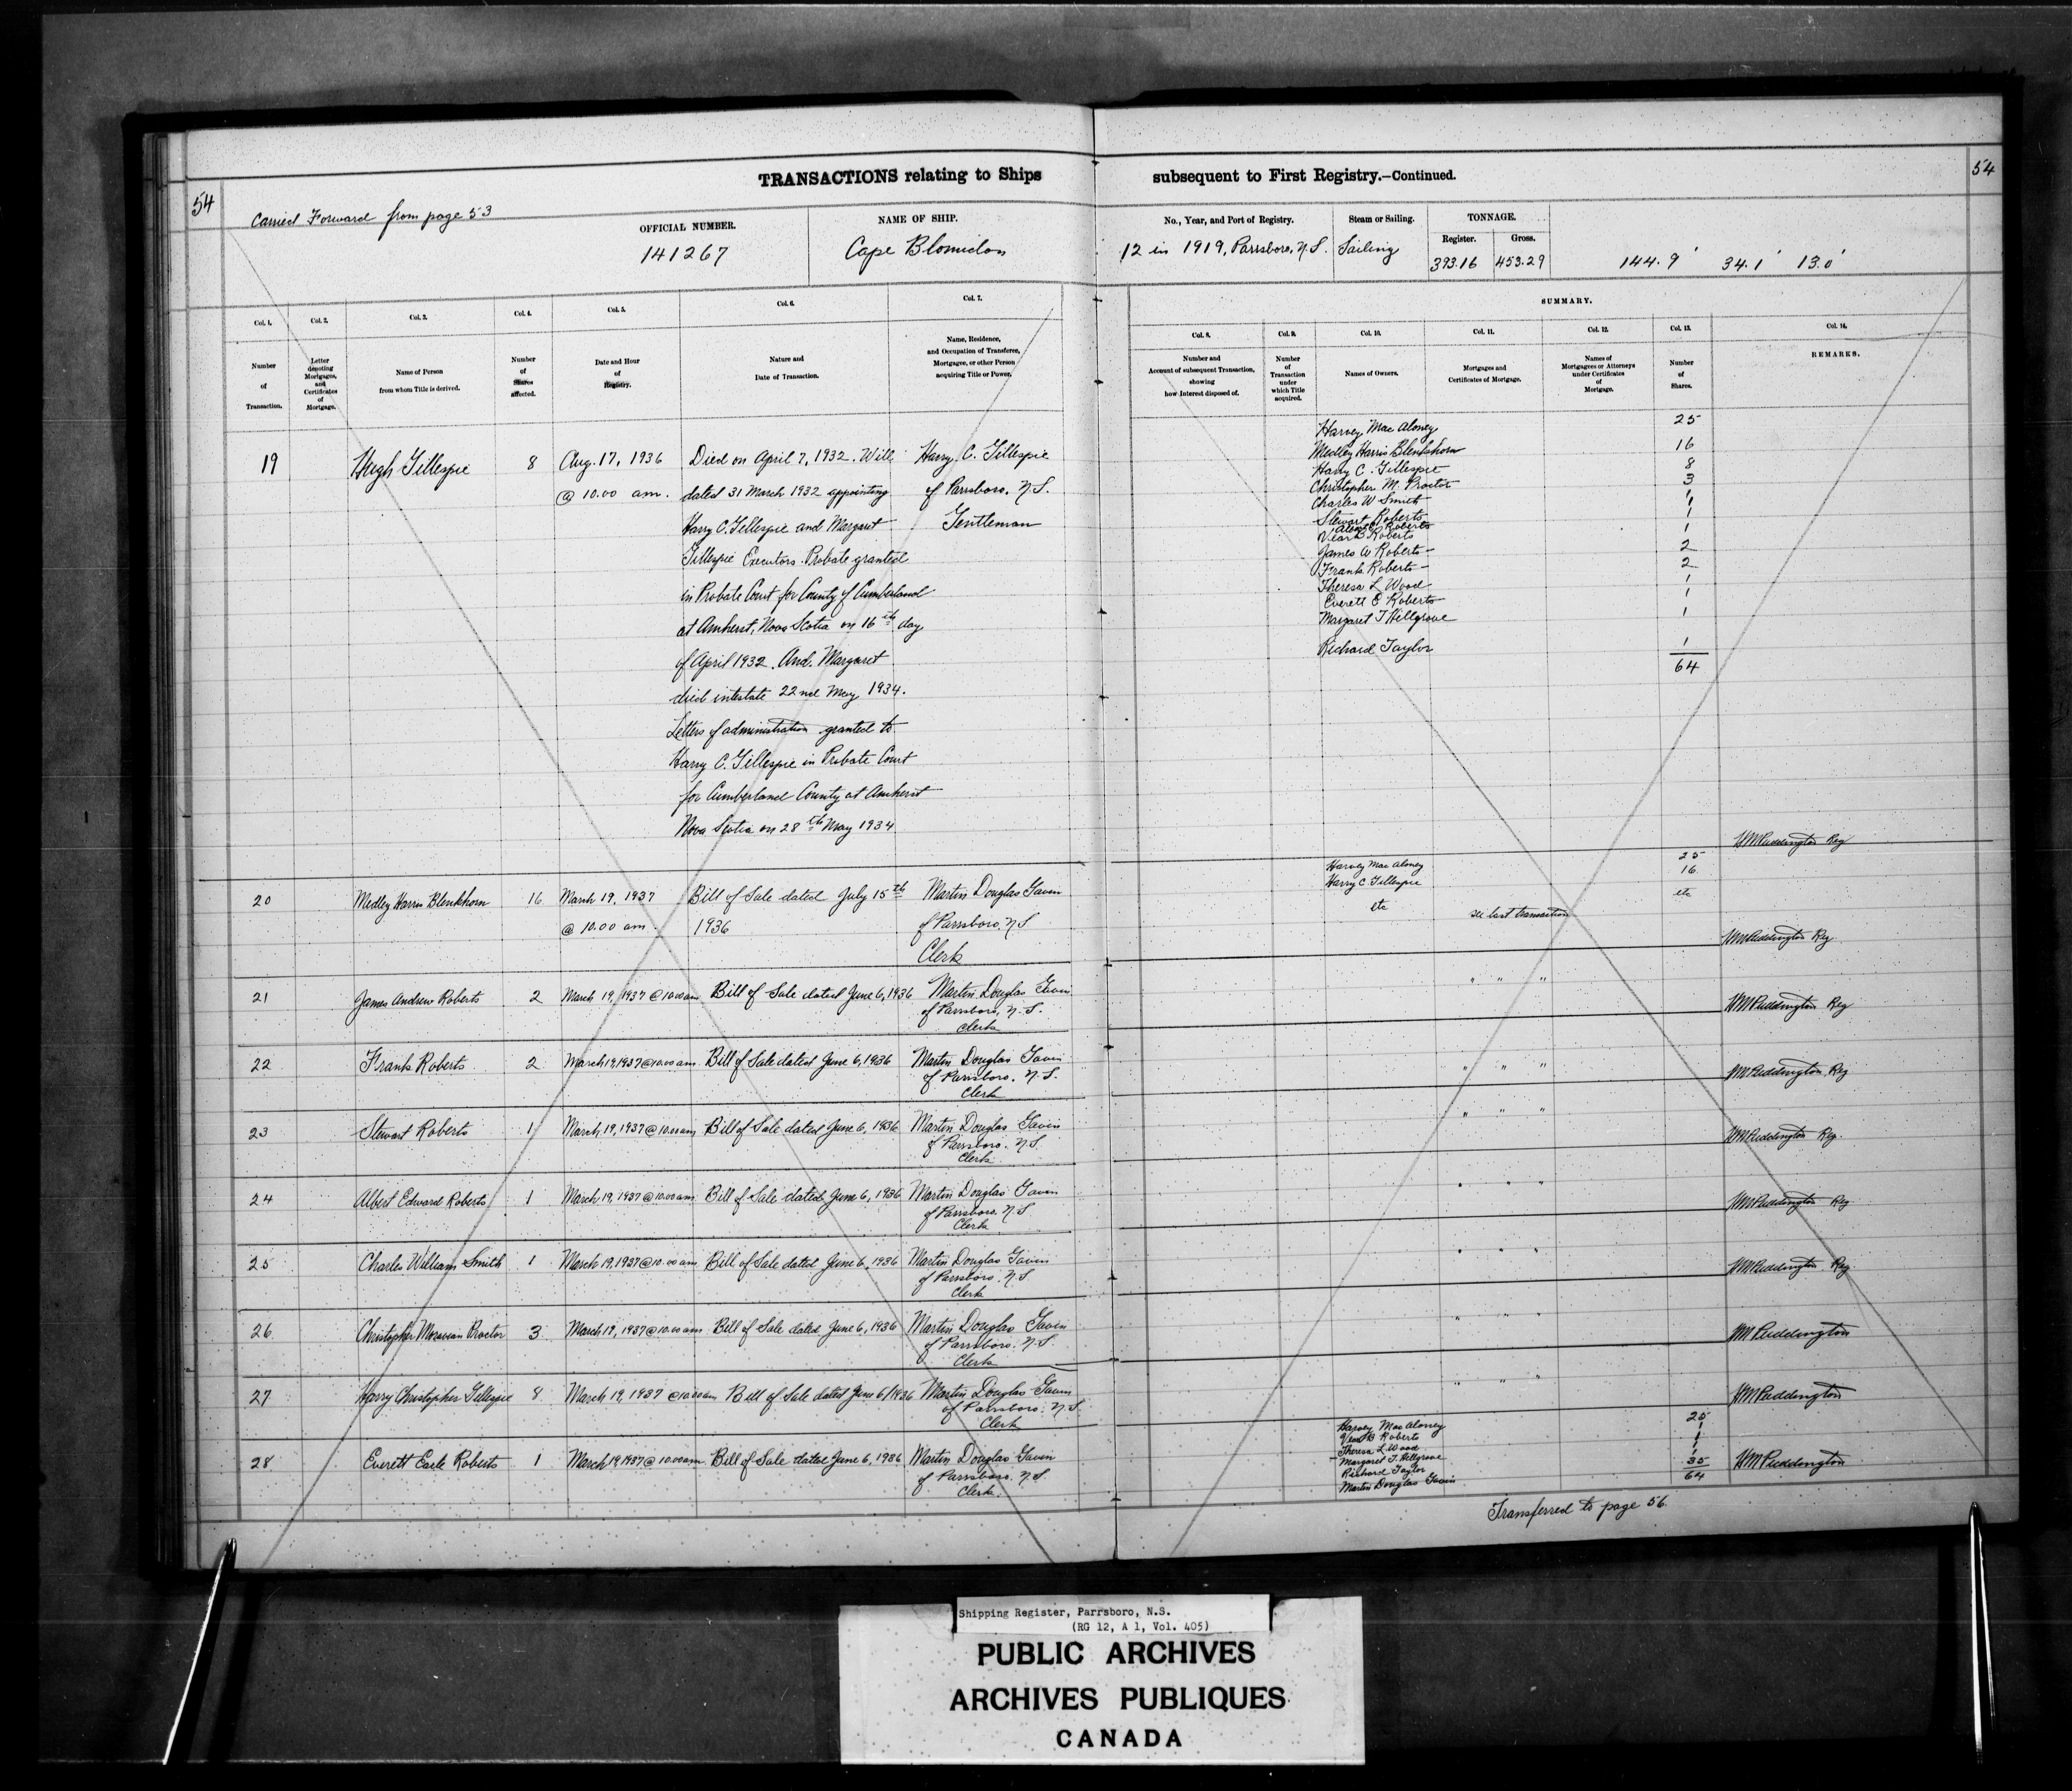 TRANSACTIONS relating to Ships subsequent to First Registry.—Continued.
54
54
Carried Forward from page 53
OFFICIAL NUMBER.
141267
NAME OF SHIP.
Cape Blomidon
No., Year, and Port of Registry.
12 in 1919, Parrsboro, N.S.
Steam or Sailing.
Sailing
TONNAGE.
Register.
Gross.
393.16
453.29
144.9' 34.1' 13.0'
SUMMARY.
Col. 1.
Col. 2.
Col. 3.
Col. 4.
Col. 5.
Col. 6.
Col. 7.
Col. 8.
Col. 9.
Col. 10.
Col. 11.
Col. 12.
Col. 13.
Col. 14.
Number
of
Transaction.
Letter
denoting
Mortgages,
and
Certificates
of
Mortgage.
Name of Person
from whom Title is derived.
Number
of
Shares
affected.
Date and Hour
of
Registry.
Nature and
Date of Transaction.
Name, Residence,
and Occupation of Transferee,
Mortgagee, or other Person
acquiring Title or Power.
Number and
Account of subsequent Transaction,
showing
how Interest disposed of.
Number
of
Transaction
under
which Title
acquired.
Names of Owners.
Mortgages and
Certificates of Mortgage.
Names of
Mortgagees or Attorneys
under Certificates
of
Mortgage.
Number
of
Shares.
REMARKS.
19
Hugh Gillespie
8
Aug. 17, 1936
@ 10.00 am.
Died on April 7, 1932. Will
dated 31 March 1932 appointing
Harry C. Gillespie and Margaret
Gillespie Executors. Probate granted
in Probate Court for County of Cumberland
at Amherst, Nova Scotia on 16th day
of April 1932. And. Margaret
died intestate 22nd May 1934.
Letters of administration granted to
Harry C. Gillespie in Probate Court
for Cumberland County at Amherst
Nova Scotia on 28th May 1934
Harry C. Gillespie
of Parrsboro, N.S.
Gentleman
Harvey Mac Aloney 25
Medley Harris Blenkhorn 16
Harry C. Gillespie 8
Christopher M. Proctor 3
Charles W Smith 1
Stewart Roberts 1
Albert E Roberts
Vear B Roberts 1
James W Roberts - 2
Frank Roberts - 2
Theresa L Wood 1
Everett E Roberts 1
Margaret T Hillgrove 1
Richard Taylor 1
64
HM Puddington Reg
20
Medley Harris Blenkhorn
16
March 19, 1937
@ 10.00 am.
Bill of Sale dated July 15th
1936
Martin Douglas Gavin
of Parrsboro, N.S
Clerk
Harvey Mac Aloney 25
Harry C Gillespie 16
etc
etc
see last transaction
HM Puddington Reg
21
James Andrew Roberts
2
March 19, 1937 @ 10.00 am
Bill of Sale dated June 6, 1936
Martin Douglas Gavin
of Parrsboro, N.S.
Clerk
" " "
HM Puddington Reg
22
Frank Roberts
2
March 19, 1937 @ 10.00 am
Bill of Sale dated June 6, 1936
Martin Douglas Gavin
of Parrsboro, N.S.
Clerk
" " "
HM Puddington Reg
23
Stewart Roberts
1
March 19, 1937 @ 10.00 am
Bill of Sale dated June 6, 1936
Martin Douglas Gavin
of Parrsboro. N.S.
Clerk
" " "
HM Puddington Reg.
24
Albert Edward Roberts
1
March 19, 1937 @ 10.00 am
Bill of Sale dated June 6, 1936
Martin Douglas Gavin
of Parrsboro, N.S
Clerk
" " "
HM Puddington Reg
25
Charles William Smith
1
March 19, 1937 @ 10.00 am
Bill of Sale dated June 6, 1936
Martin Douglas Gavin
of Parrsboro, N.S
Clerk
" " "
HM Puddington Reg.
26
Christopher Proctor
3
March 19, 1937 @ 10.00 am
Bill of Sale dated June 6, 1936
Martin Douglas Gavin
of Parrsboro, N.S.
Clerk
" " "
HM Puddington
27
Harry Christopher Gillespie
8
March 19, 1937 @ 10.00 am
Bill of Sale dated June 6/1936
Martin Douglas Gavin
of Parrsboro, N.S
Clerk
" " "
HM Puddington
28
Everett Earle Roberts
1
March 19, 1937 @ 10.00 am
Bill of Sale dated June 6, 1936
Martin Douglas Gavin
of Parrsboro, N.S.
Clerk.
Harvey Mac Aloney 25
Vear B Roberts 1
Theresa L Wood 1
Margaret T. Hillgrove 1
Richard Taylor
Martin Douglas Gavin 35
64
HM Puddington
Transferred to page 56
Shipping Register, Parrsboro, N.S.
(RG 12, A 1, Vol. 405)
PUBLIC ARCHIVES
ARCHIVES PUBLIQUES
CANADA